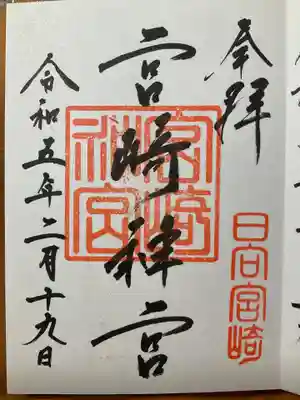 奉拝
日向宮崎
宮崎神宮
宮崎
神宮
令和五年二月十九日